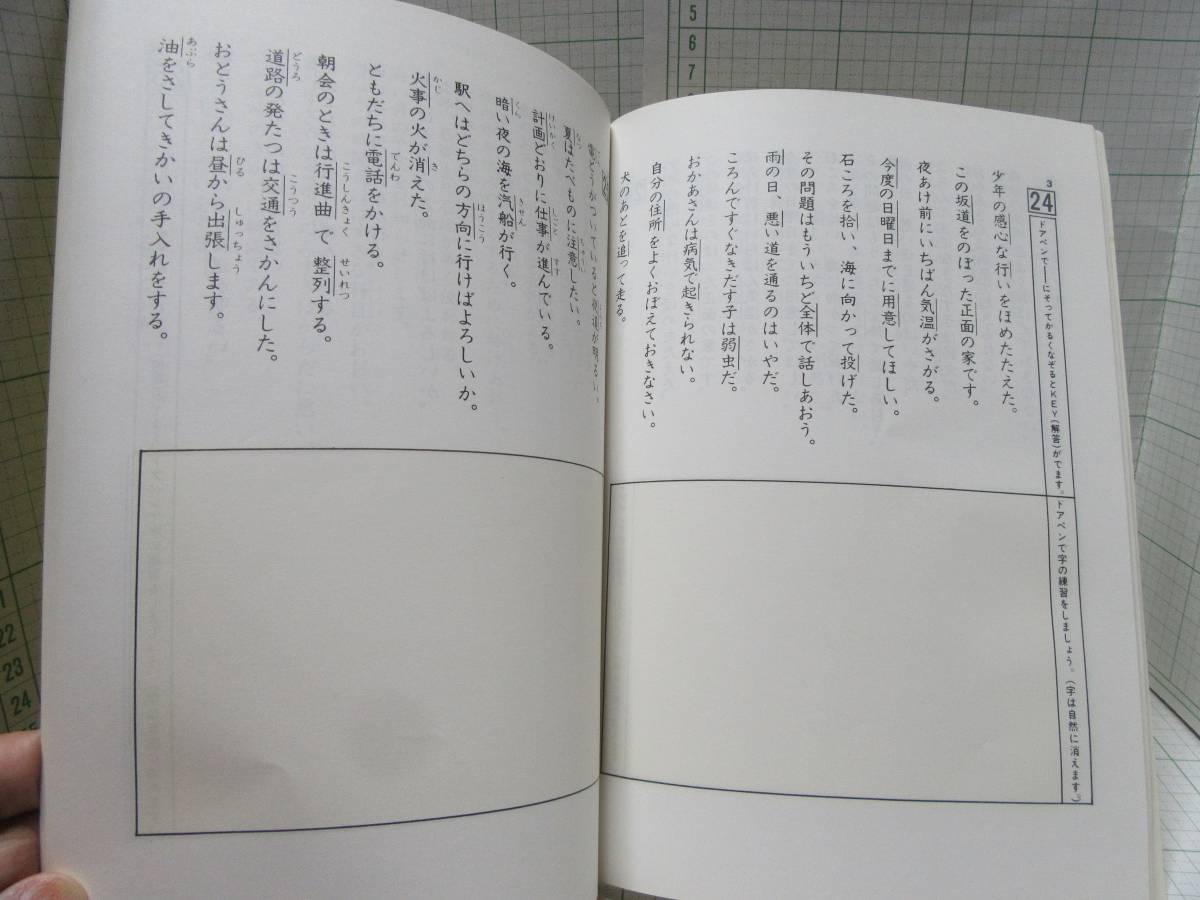 3
24
ドアペンで—にそってかるくなぞるとKEY(解答)がでます。ドアペンで字の練習をしましょう。(字は自然に消えます。)
少年の感心な行いをほめたたえた。
この坂道をのぼった正面の家です。
夜あけ前にいちばん気温がさがる。
今度の日曜日までに用意してほしい。
石ころを拾い、海に向かって投げた。
その問題はもういちど全体で話しあおう。
雨の日、悪い道を通るのはいやだ。
ころんですぐなきだす子は弱虫だ。
おかあさんは病気で起きられない。
自分の住所をよくおぼえておきなさい。
犬のあとを追って走る。
がついていると夜道が明るい。
夏はたべものに注意したい。
計画どおりに仕事が進んでいる。
暗い夜の海を汽船が行く。
駅へはどちらの方向に行けばよろしいか。
火事の火が消えた。
ともだちに電話をかける。
朝会のときは行進曲で整列する。
道路の発たつは交通をさかんにした。
おとうさんは昼から出張します。
油をさしてきかいの手入れをする。
なつ
ちゅうい
けいかく
しごと
すす
くら
きせん
ほうこう
かじ
き
でんわ
こうしんきょく
せいれつ
どうろ
こうつう
ひる
しゅっちょう
あぶら
5
6
7
22
23
24